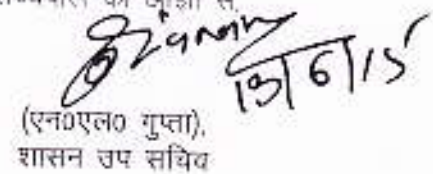 की आज्ञा से,
13/6/15
(एन0एल0 गुप्ता),
शासन उप सचिव